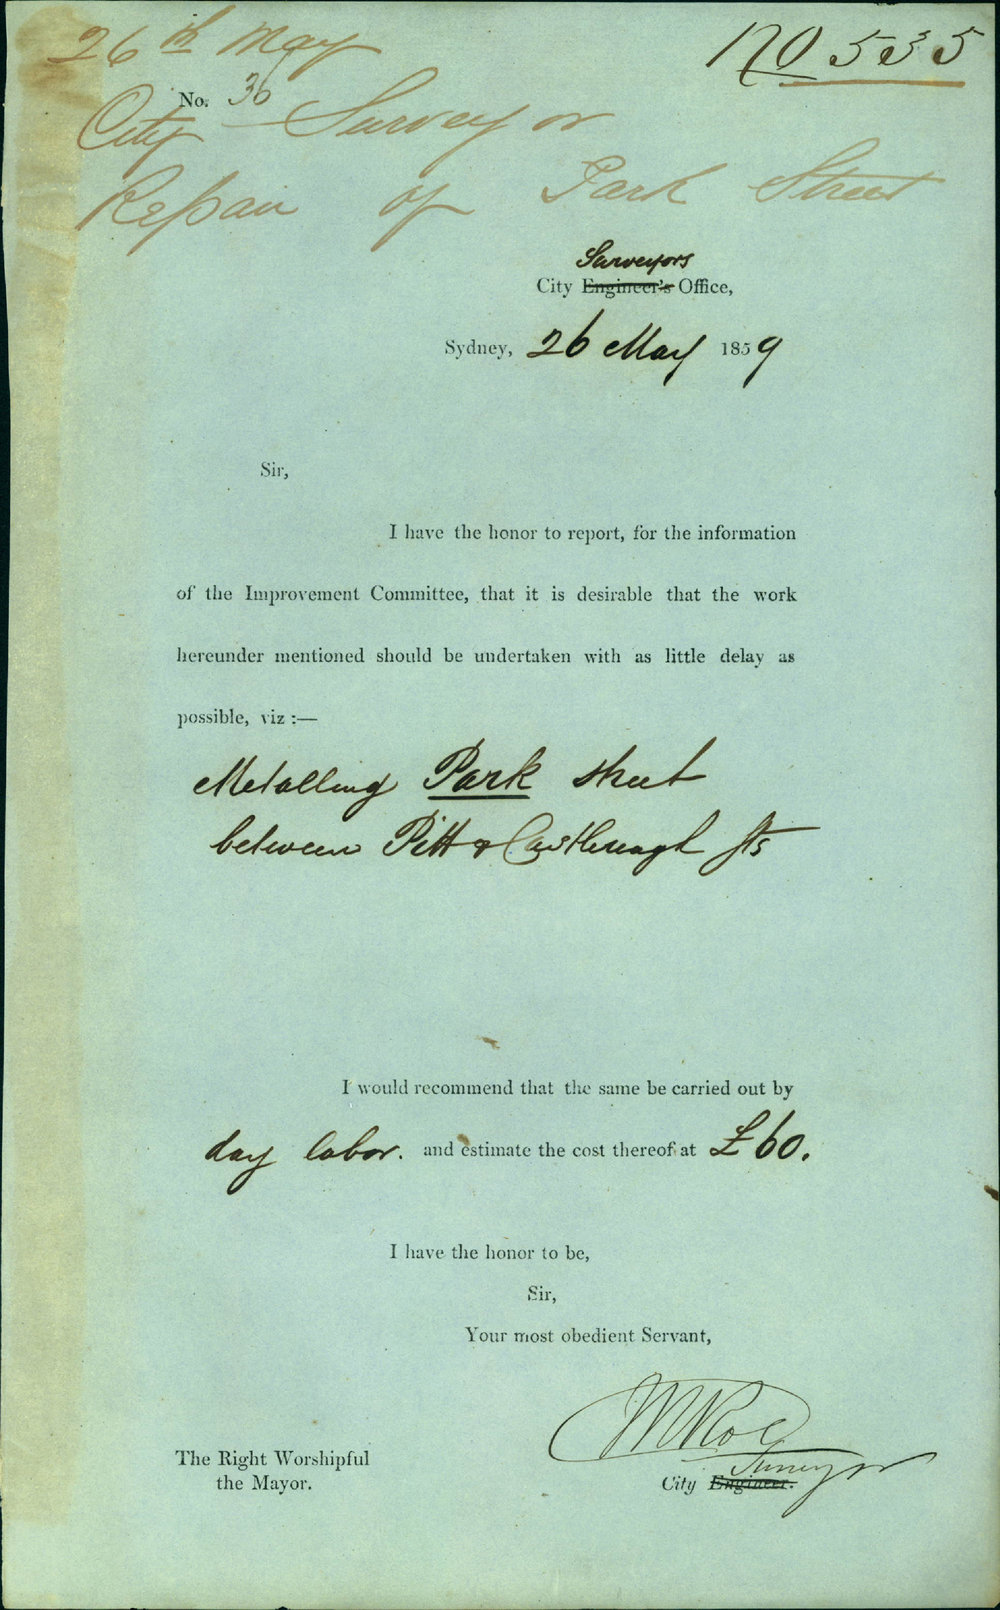 26th May
No 535
No. 36
City Surveyor
Repair of Park Street
Surveyors
City Engineer's Office,
Sydney, 26 May 1859
Sir,
I have the honor to report, for the information
of the Improvement Committee, that it is desirable that the work
hereunder mentioned should be undertaken with as little delay as
possible, viz :—
Metalling Park street
between Pitt & Castlereagh Sts
I would recommend that the same be carried out by
day labor. and estimate the cost thereof at £60.
I have the honor to be,
Sir,
Your most obedient Servant,
Surveyor
City Engineer.
The Right Worshipful
the Mayor.